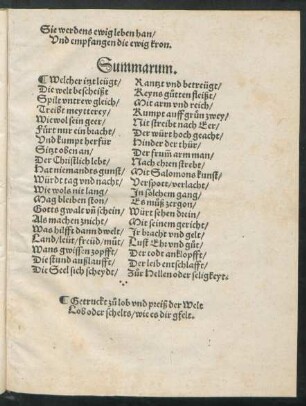 Sie werdens ewig leben han/
Vnd empfangen die ewig kron.
Summarum.
¶ Welcher itzt leügt/ Rantzt vnd betreügt/
Die welt bescheißt Keyns gůtten fleißt/
Spilt vntrew gleich/ Mit arm vnd reich/
Treibt meyterey/ Rumpt auff grün zwey/
Wie wol sein geet/ Nit strebt nach Eer/
Fürt nur ein bracht/ Der würt hoch geacht/
Vnd kumpt herfür Hinder der thür/
Sitzt oben an/ Der frum arm man/
Der Christlich lebt/ Nach ehren strebt/
Hat niemandts gunst/ Mit Salomons kunst/
Würdt tag vnd nacht/ Verspott/verlacht/
Wie wols nit lang/ In solchem gang/
Mag bleiben ston/ Es můß zergon/
Gotts gwalt vn schein/ Würt sehen drein/
Als machen znicht/ Mit seinem gericht/
Was hilfft dann dwelt/ Ir bracht vnd gelt/
Land/leüt/freüd/můt/ Lust Ehr vnd gůt/
Wans gwissen zopfft/ Der todt anklopfft/
Die stund außlaufft/ Der leib entschlafft/
Die Seel sich scheydt/ Zůr Hellen oder seligkeyt.
¶ Getruckt zů lob vnd preiß der Welt
Lob oder schelts/wie es dir gfelt.